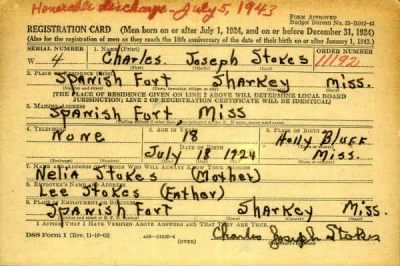 Honorable discharge - July 5, 1943
Form Approved
Budget Bureau No. 33-R012-42
REGISTRATION CARD (Men born on or after July 1, 1924, and on or before December 31, 1924)
(Also for the registration of men as they reach the 18th anniversary of the date of their birth on or after January 1, 1943.)
SERIAL NUMBER 1. NAME (Print) ORDER NUMBER
W 4 Charles Joseph Stokes 11192
2. PLACE
Spanish Fort Sharkey Miss.
[THE PLACE OF RESIDENCE GIVEN ON LINE 2 ABOVE WILL DETERMINE LOCAL BOARD
JURISDICTION; LINE 2 OF REGISTRATION CERTIFICATE WILL BE IDENTICAL]
3. MAILING ADDRESS
Spanish Fort, Miss
4. TELEPHONE 5. AGE IN YEARS 6. PLACE OF BIRTH
None 18 Holly Bluff
DATE OF BIRTH
July 18 1924 Miss.
7.
Nelia Stokes (Mother)
8. EMPLOYER'S NAME AND ADDRESS
Lee Stokes (Father)
9. PLACE OF EMPLOYMENT OR BUSINESS
Spanish Fort Sharkey Miss.
I AFFIRM THAT I HAVE VERIFIED ABOVE ANSWERS AND THAT THEY ARE TRUE.
DSS Form 1 (Rev. 11-16-42) (OVER) Charles Joseph Stokes